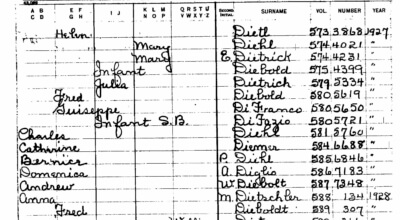 A B C D E F G H I J K L M N O P Q R S T U V W X Y Z SECOND INITIAL SURNAME VOL. NUMBER YEAR
Helen Dietl 573 3868 1927
Mary Diehl 574 4021 "
Mary E. Dietrick 574 4231 "
Infant Diebold 575 4399 "
Julia Dietrich 579 5334 "
Fred Diebold 580 5619 "
Guiseppe Di Franco 580 5650 "
Infant S.B. Di Fazio 580 5721 "
Charles Diehl 581 5760 "
Catherine Diemer 584 6688 "
Bernier P. Dihl 585 6846 "
Domenica A. 586 7183 "
Andrew W. Diebolt 587 7348 "
Anna M. Dietschler 588 134 1928
Fred Dieboldt 589 307 "